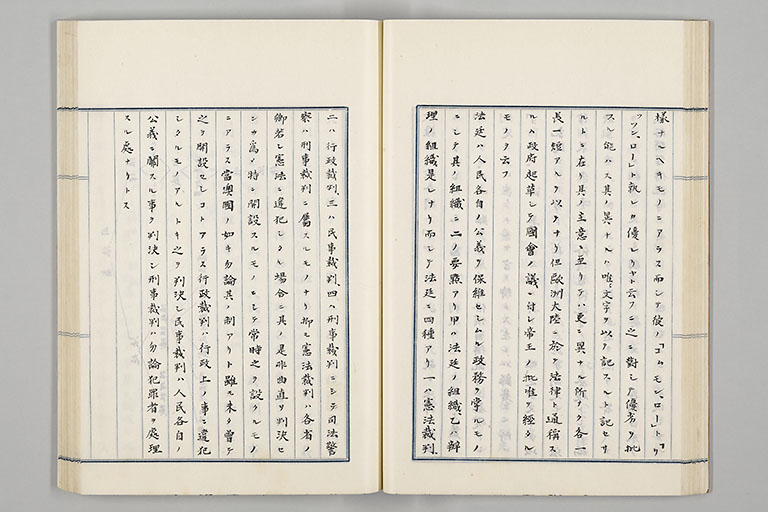 樣ナルヘキモノニアラス而シテ彼ノ「コムモン、ロー」ト「リ
ツツン、ロー」ト孰レカ優レリヤト云フニ之ニ對シテ優劣ヲ批
スル能ハス其ノ異ナルハ唯々文字ヲ以テ記スルト記セサ
ルトニ在リ其ノ主意ニ至リテハ更ニ異ナル所ナク各一
長一短アルヲ以テナリ但歐洲大陸ニ於テ法律ト通稱ス
ルハ政府起草シテ國會ノ議ニ付シ帝王ノ批准ヲ經タル
モノヲ云フ
法廷ハ人民各自ノ公義ヲ保維セシムル政務ヲ掌ルモノ
ニシテ其ノ組織ニ二ノ要點アリ甲ハ法廷ノ組織、乙ハ辦
理ノ組織是レナリ而シテ法廷ニ四種アリ一ハ憲法裁判、
二ハ行政裁判、三ハ民事裁判、四ハ刑事裁判ニシテ司法警
察ハ刑事裁判ニ屬スルモノナリ抑モ憲法裁判ハ各省ノ
卿若シ憲法ニ違犯シタル場合ニ其ノ是非曲直ヲ判決セ
シカ爲メ特ニ開設スルモノニシテ常時之ヲ設クルモノ
ニアラス當澳國ノ如キ勿論其ノ制アリト雖モ未タ曾テ
之ヲ開設セシコトアラス行政裁判ハ行政上ノ事ニ違犯
シタルモノアルトキ之ヲ判決シ民事裁判ハ人民各自ノ
公義ニ關スル事ヲ判決シ刑事裁判ハ勿論犯罪者ヲ處理
スル處ナリトス